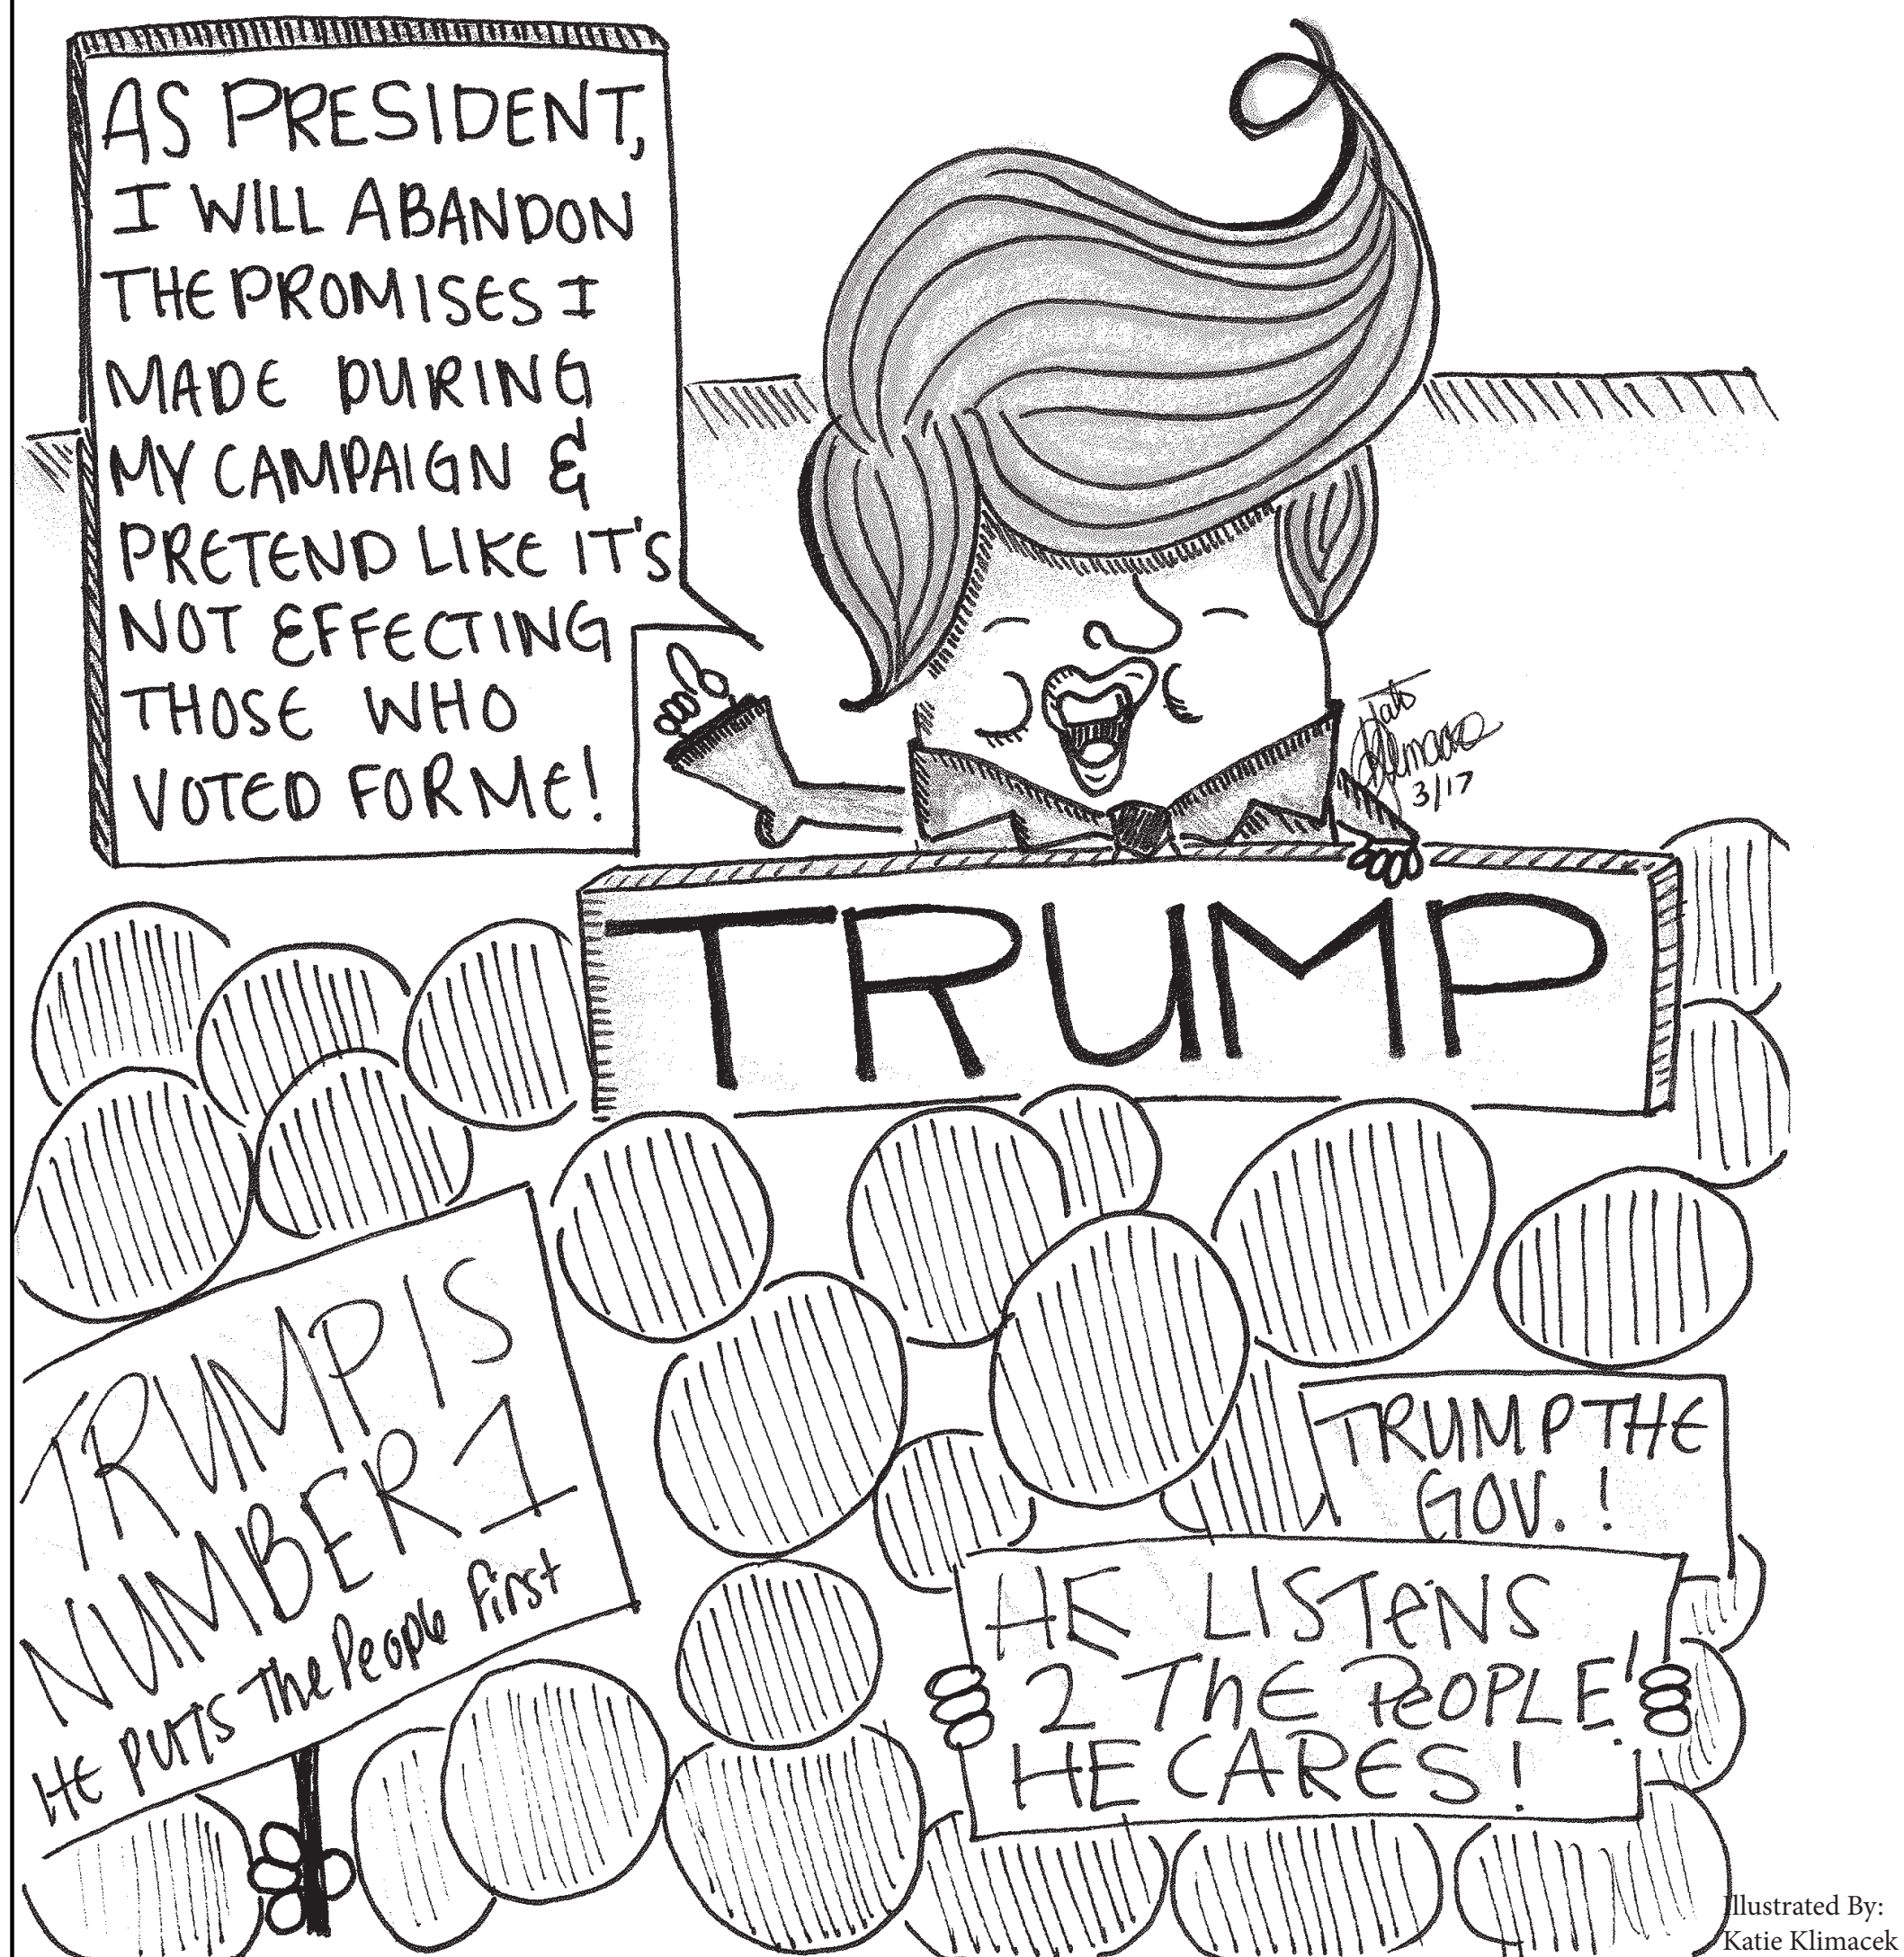 AS PRESIDENT,
I WILL ABANDON
THE PROMISES I
MADE DURING
MY CAMPAIGN &
PRETEND LIKE IT'S
NOT EFFECTING
THOSE WHO
VOTED FOR ME!
Katie
Klimacek
3/17
TRUMP
TRUMP IS
NUMBER 1
HE PUTTS The People First
TRUMP THE
GOV. !
HE LISTeNS
2 ThE PeOPLE!
HE CARES!
Illustrated By:
Katie Klimacek